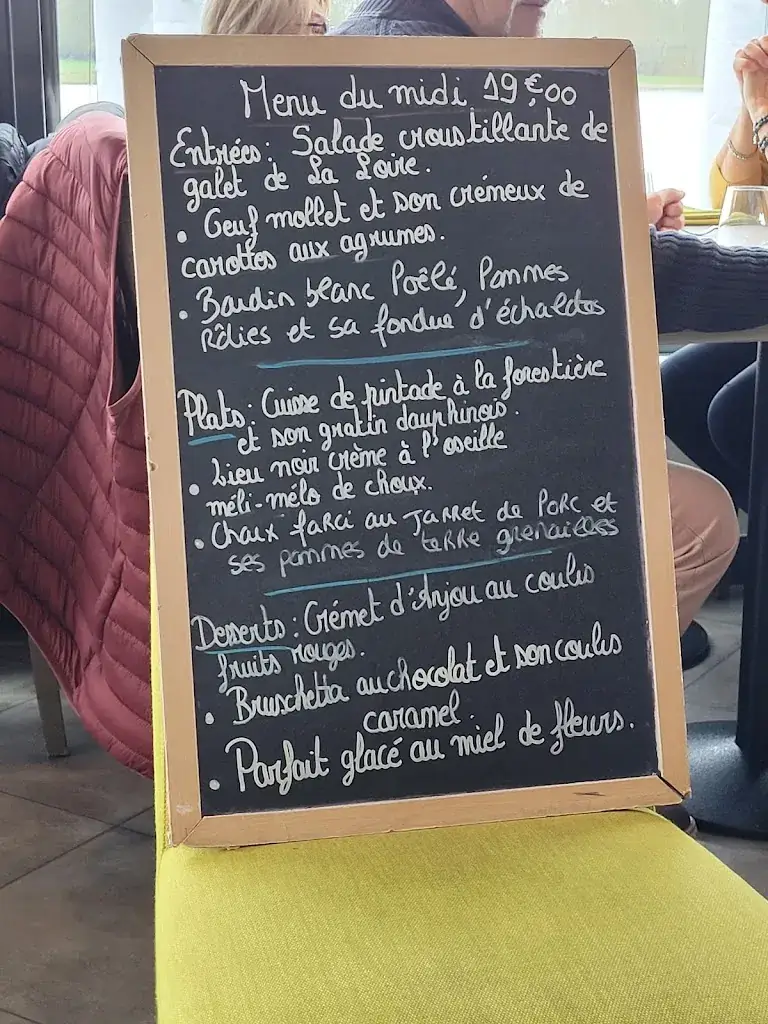 Menu du midi 19€,00
Entrées : Salade croustillante de
galet de La Loire.
• Oeuf mollet et son crémeux de
carottes aux agrumes.
• Boudin blanc Poêlé, Pommes
Rôties et sa fondue d'échalotes
Plats : Cuisse de pintade à la forestière
et son gratin dauphinois.
• Lieu noir crème à l'oseille
méli-mélo de choux.
• Choux farci au Jarret de Porc et
ses pommes de terre grenailles
Desserts : Crémet d'Anjou au coulis
fruits rouges.
• Bruschetta au chocolat et son coulis
caramel.
• Parfait glacé au miel de fleurs.